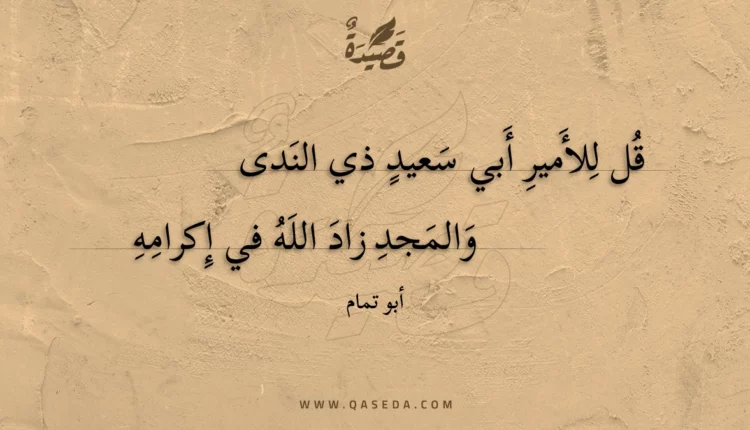 قَصِيْدَةٌ
قُل لِلأَميرِ أَبي سَعيدٍ ذي النَدى
وَالمَجدِ زادَ اللَهُ في إِكرامِهِ
أبو تمام
WWW.QASEDA.COM